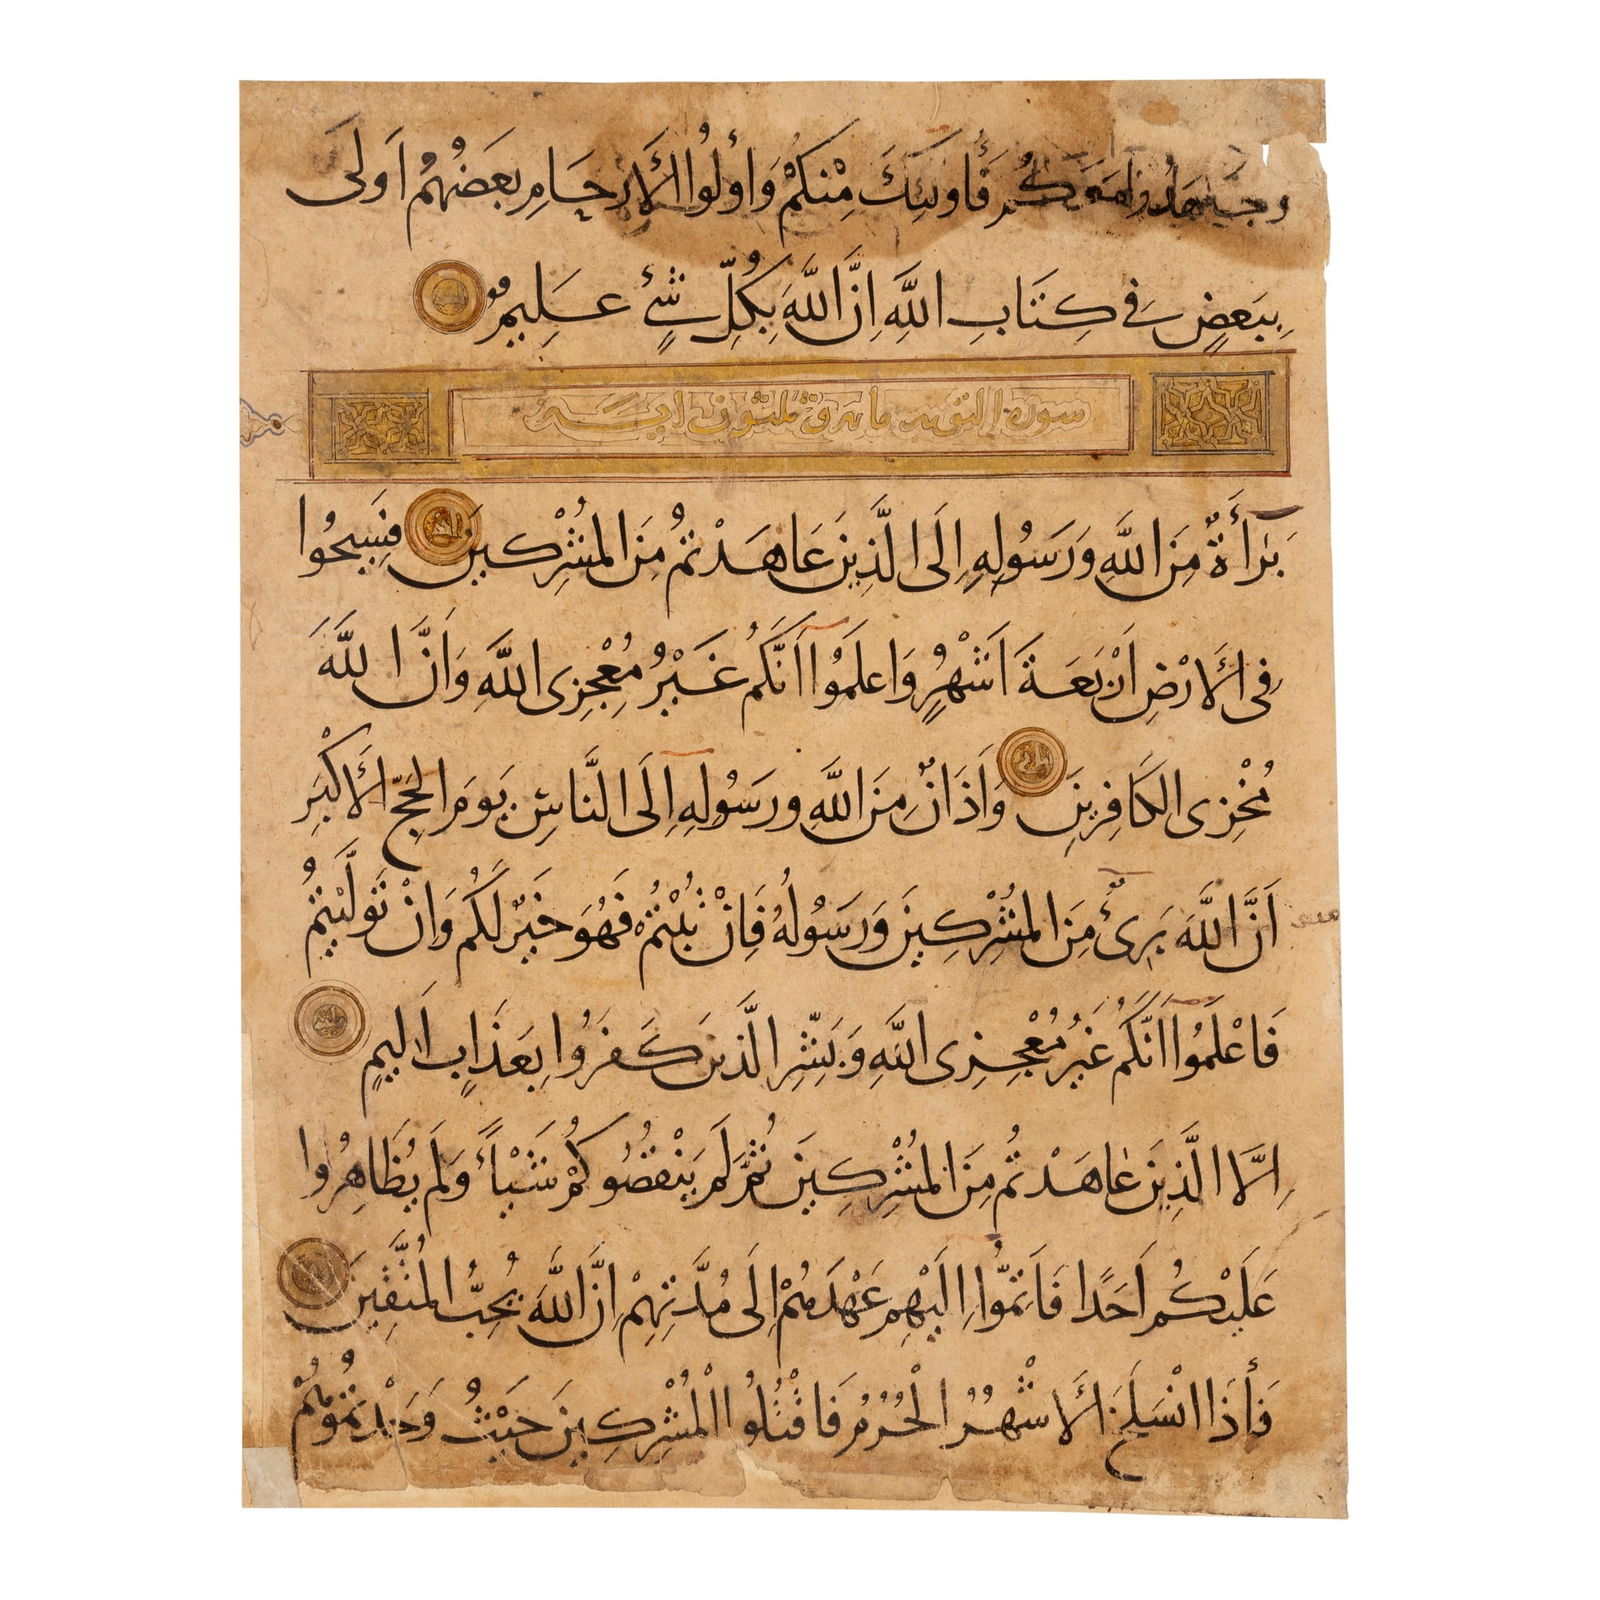 وجهدوا معكم فأولئك منكم وأولوا الأرحام بعضهم أولى
ببعض في كتاب الله إن الله بكل شئ عليم
سورة التوبة مائة وثلثون آية
بَرَأَةٌ مِنَ اللَّهِ وَرَسُولِهِ إِلَى الَّذِينَ عَاهَدْتُمْ مِنَ المُشْرِكِينَ فَسِيحُوا
فِى الأَرْضِ أَرْبَعَةَ أَشْهُرٍ وَاعلَمُوا أَنَّكُم غَيْرُ مُعْجِزِى اللَّهِ وَأَنَّ اللَّهَ
مُخْزِى الكَافِرِينَ وَأَذَانٌ مِنَ اللَّهِ ورَسُولِهِ إِلَى النَّاسِ يَومَ الحَجِّ الأَكْبَرِ
أَنَّ اللَّهَ بَرِىءٌ مِنَ المُشْرِكِينَ وَرَسُولُهُ فَإِنْ تُبْتُمْ فَهُوَ خَيْرٌ لَكُم وَإِنْ تَوَلَّيْتُمْ
فَاعْلَمُوا أَنَّكُمْ غَيْرُ مُعْجِزِى اللَّهِ وَبَشِّرِ الَّذِينَ كَفَرُوا بِعَذَابٍ أَلِيمٍ
إِلَّا الَّذِينَ عَاهَدْتُم مِنَ المُشْرِكِينَ ثُمَّ لَم يَنْقُصُوكُمْ شَيْئًا وَلَم يُظَاهِرُوا
عَلَيْكُم أَحَدًا فَأَتِمُّوا إِلَيْهِم عَهْدَهُمْ إِلَى مُدَّتِهِمْ إِنَّ اللَّهَ يُحِبُّ المُتَّقِينَ
فَأِذَا انْسَلَخَ الأَشْهُرُ الْحُرُمُ فَاقْتُلُوا الْمُشْرِكِينَ حَيْثُ وَجَدْتُمُوهُمْ